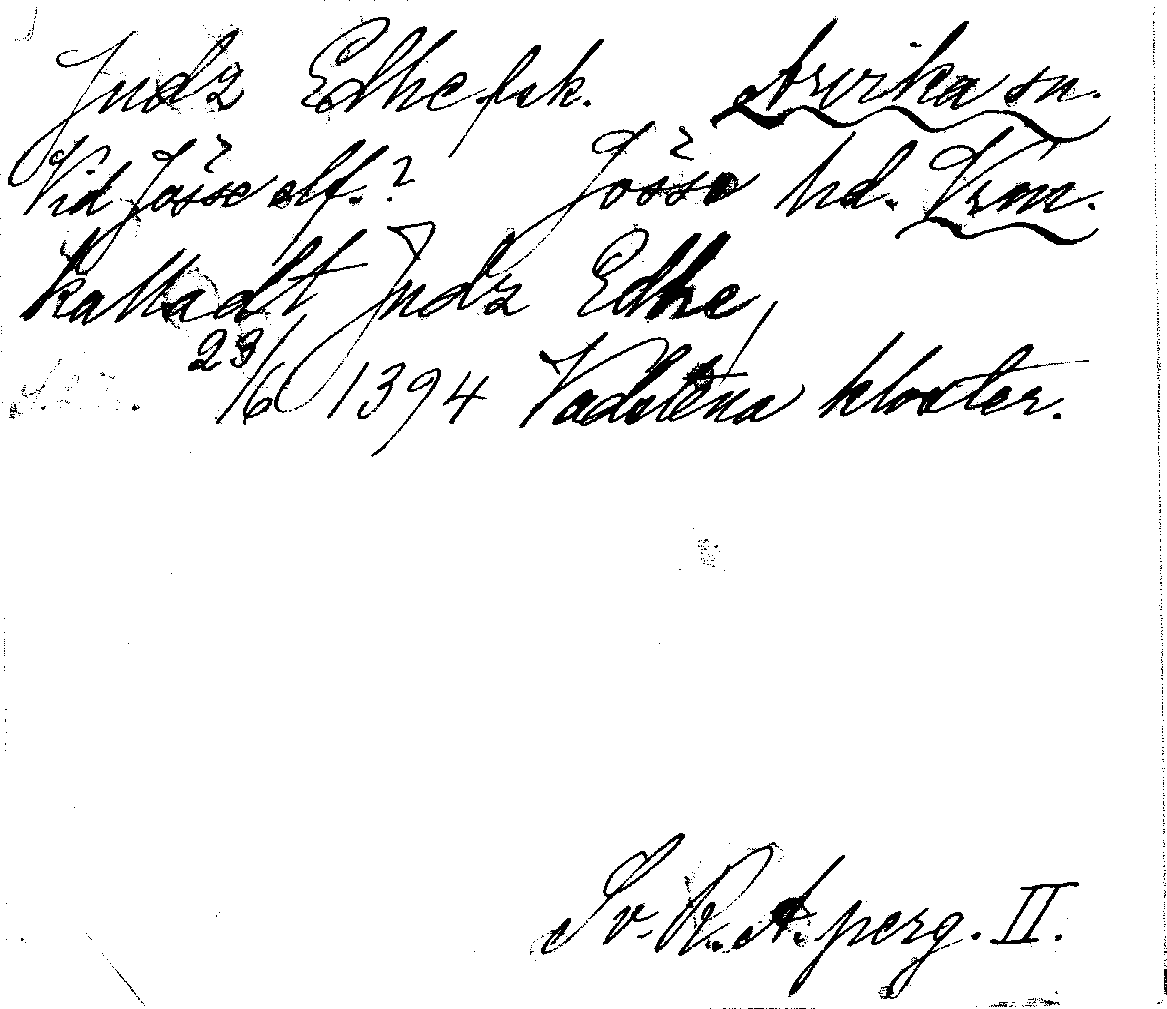 Jndz Edhe fsk. Arvika sn.
Vid Jösse elf.? Jösse hd. Vrm.
kalladt Jndz Edhe,
23/6 1394 Vadstena kloster.
Sv. R. A. perg. II.